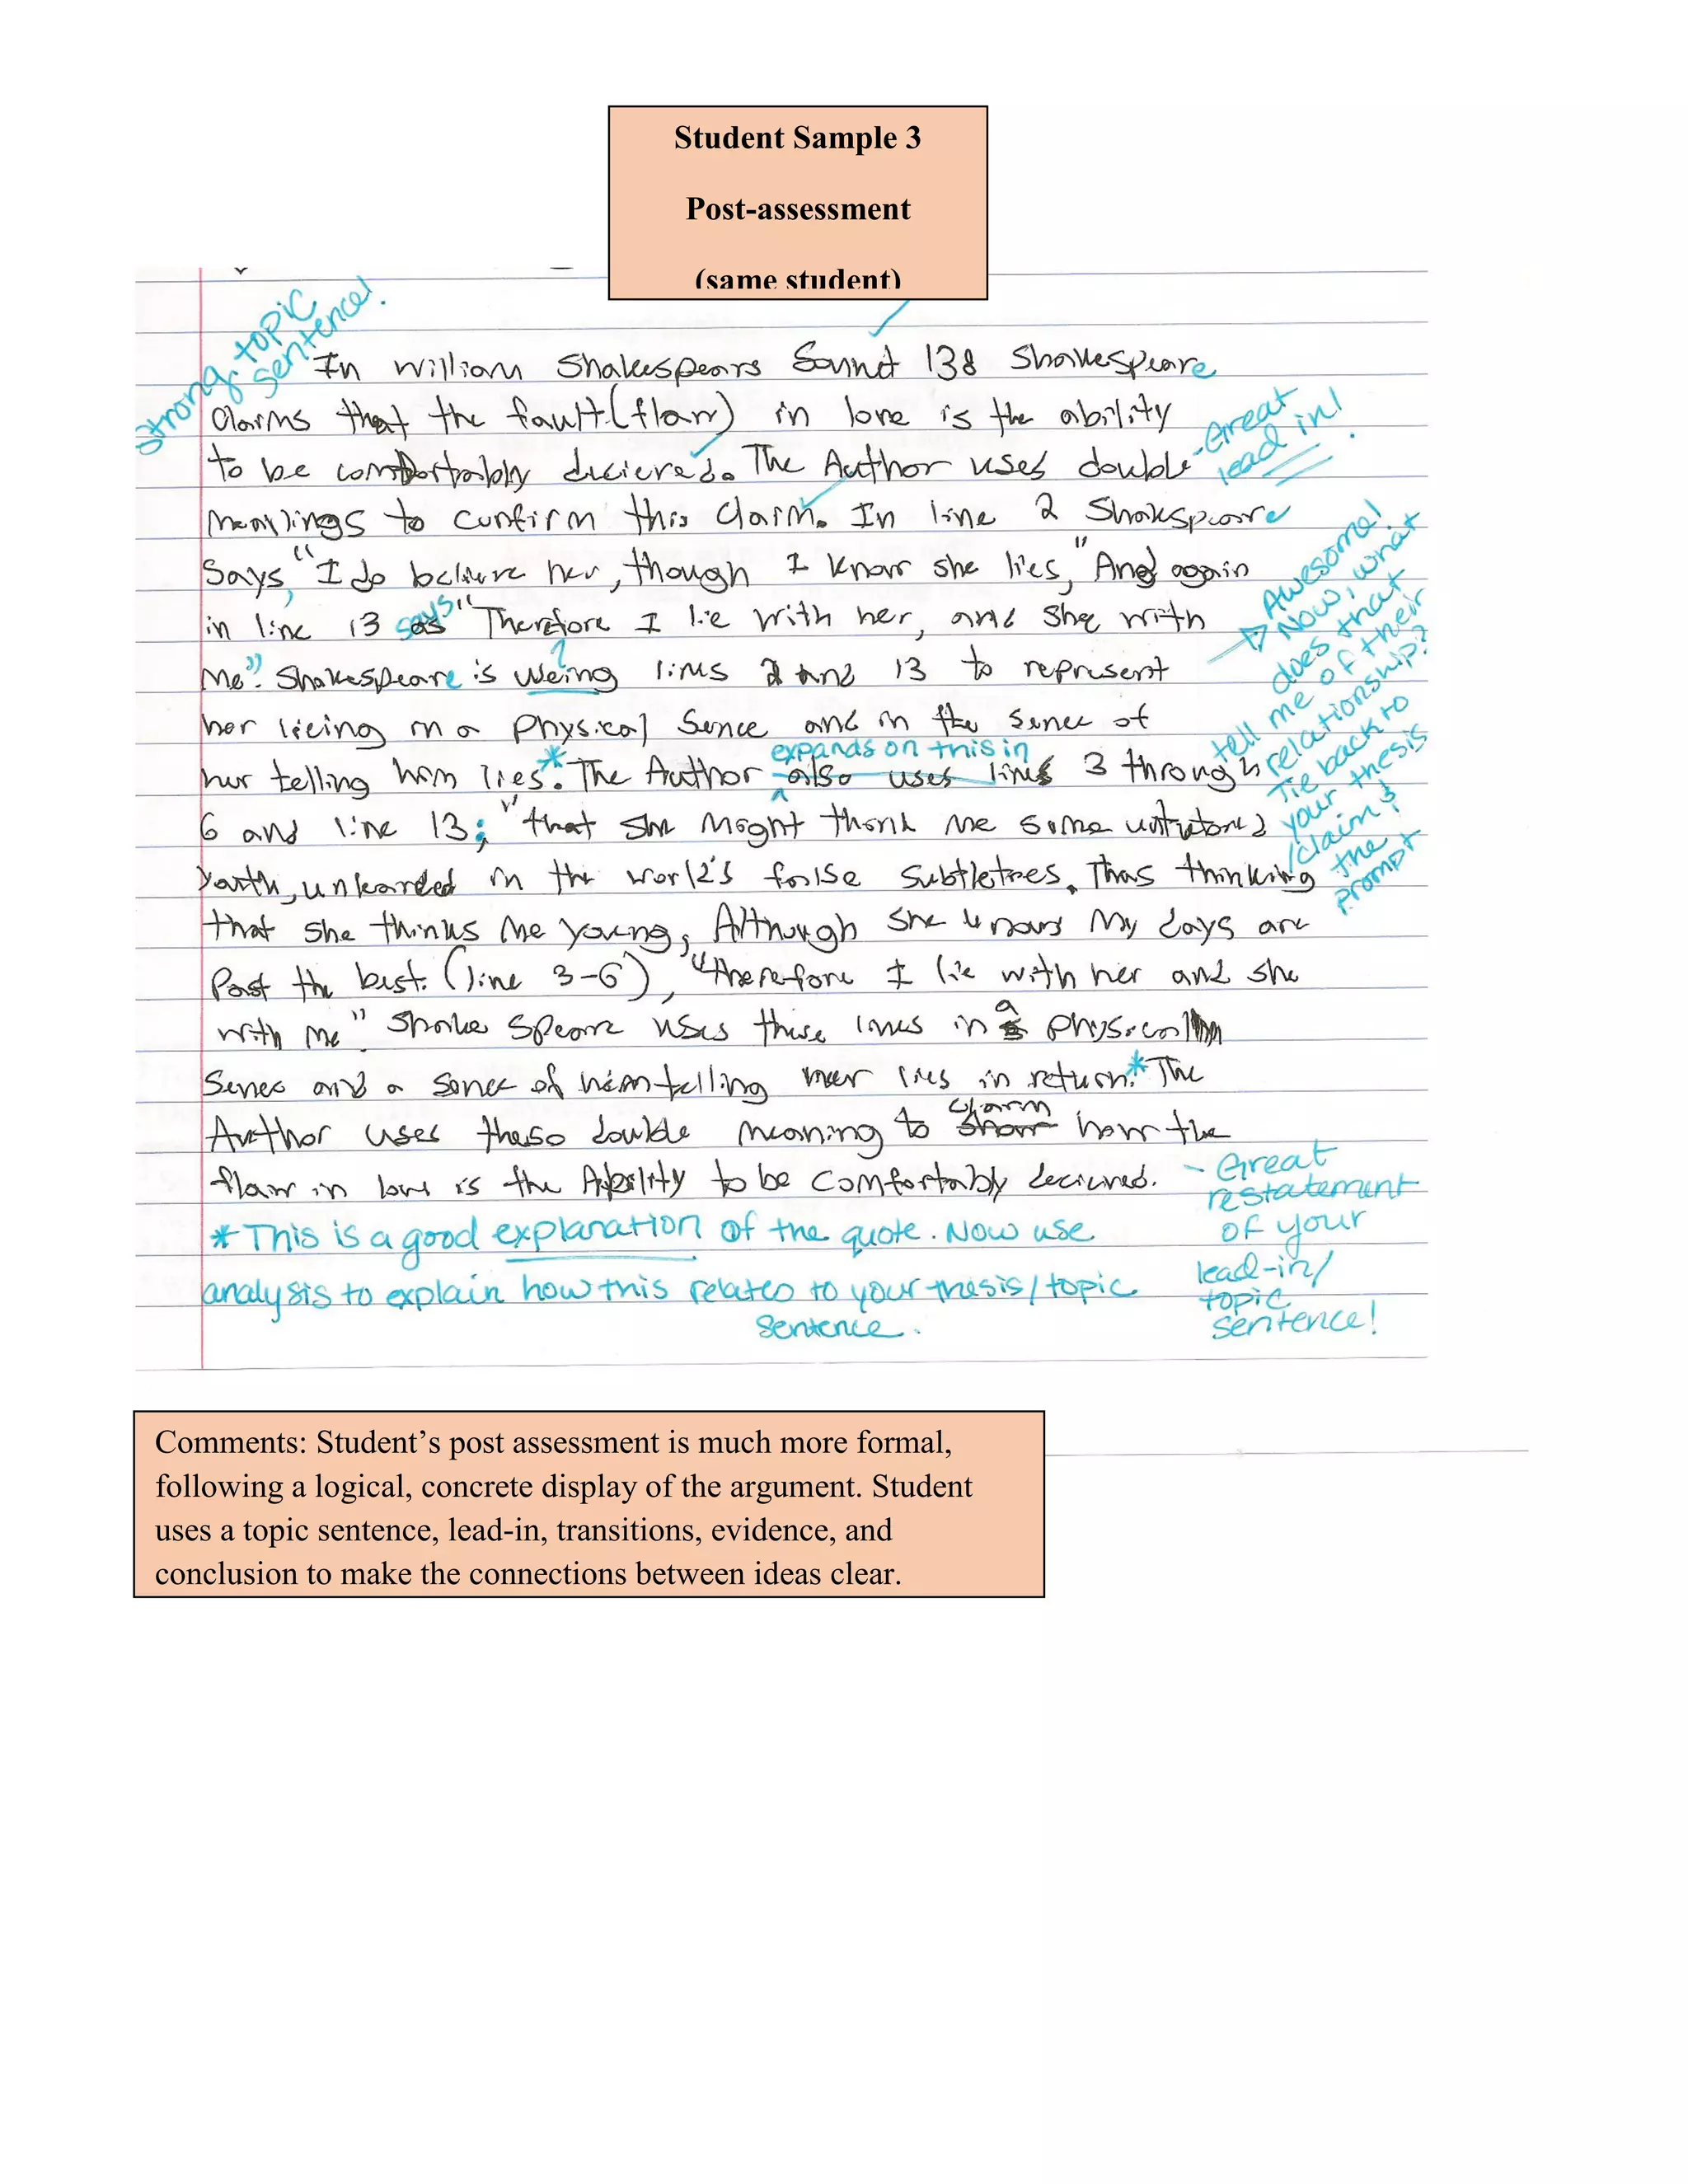 Student Sample 3
Post-assessment
(same student)
Strong topic
sentence!
In William Shakespears Sonnet 138 Shakespeare
claims that the fault (flaw) in love is the ability
to be comfortably decieved. The Author uses double
-Great
lead in!
meanings to confirm this claim. In line 2 Shakspeare
says, "I do believe her, though I know she lies," And again
in line 13 as says "Therefore I lie with her, and she with
Awesome!
Now, what
does that
tell me of their
relationship?
Tie back to
your thesis
/claim &
the
prompt
me". Shakespeare is useing lines 2 and 13 to represent
?
her lieing in a physical sence and in the sence of
expands on this in
her telling him lies*. The Author also uses lines 3 through
6 and line 13; "that she might think me some untutored
youth, unlearded in the world's false subtleties. Thus thinking
that she thinks me young, Although she knows my days are
Past the best. (line 3-6), "therefore I lie with her and she
with me" Shake speare uses these lines in a physical
sence and a sence of him telling her lies in return.* The
Author uses these double meaning to show claim how the
flaw in love is the Ability to be comfortably decieved.
- Great
restatement
of your
lead-in/
topic
sentence!
* This is a good explanation of the quote. Now use
analysis to explain how this relates to your thesis/topic
sentence.
Comments: Student's post assessment is much more formal,
following a logical, concrete display of the argument. Student
uses a topic sentence, lead-in, transitions, evidence, and
conclusion to make the connections between ideas clear.